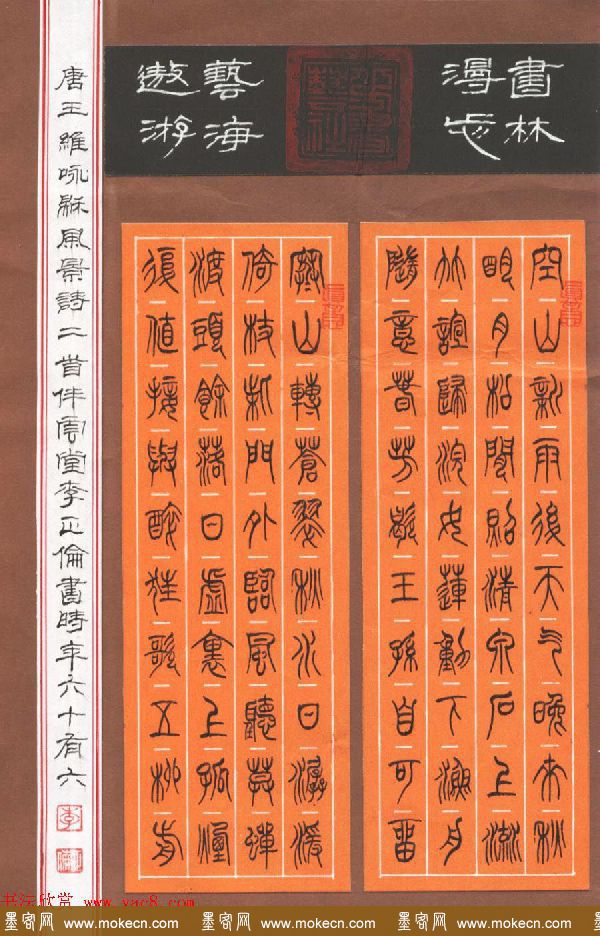 書林
漫步
藝海
遨游
空山新雨後天气晚來秋
明月松間照清泉石上流
竹諠歸浣女蓮動下漁舟
隨意春芳歇王孫自可留
寒山轉蒼翠秋水日潺湲
倚杖柴門外臨風聽暮蟬
渡頭餘落日虛裏上孤煙
復值接輿醉狂歌五柳前
唐王維咏秋風景詩二首伴雲堂李正倫書時年六十有六
李
书法欣赏 www.yac8.com
墨客网 www.mokecn.com 墨客网 www.mokecn.com 墨客网 www.mokecn.com